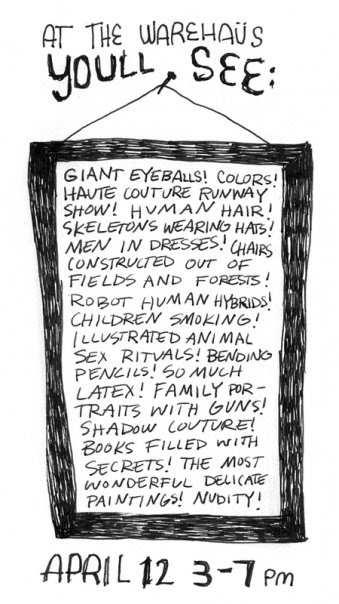 AT THE WAREHAÜS
YOU'LL SEE:
GIANT EYEBALLS! COLORS!
HAUTE COUTURE RUNWAY
SHOW! HUMAN HAIR!
SKELETONS WEARING HATS!
MEN IN DRESSES! CHAIRS
CONSTRUCTED OUT OF
FIELDS AND FORESTS!
ROBOT HUMAN HYBRIDS!
CHILDREN SMOKING!
ILLUSTRATED ANIMAL
SEX RITUALS! BENDING
PENCILS! SO MUCH
LATEX! FAMILY POR-
TRAITS WITH GUNS!
SHADOW COUTURE!
BOOKS FILLED WITH
SECRETS! THE MOST
WONDERFUL DELICATE
PAINTINGS! NUDITY!
APRIL 12 3-7 PM